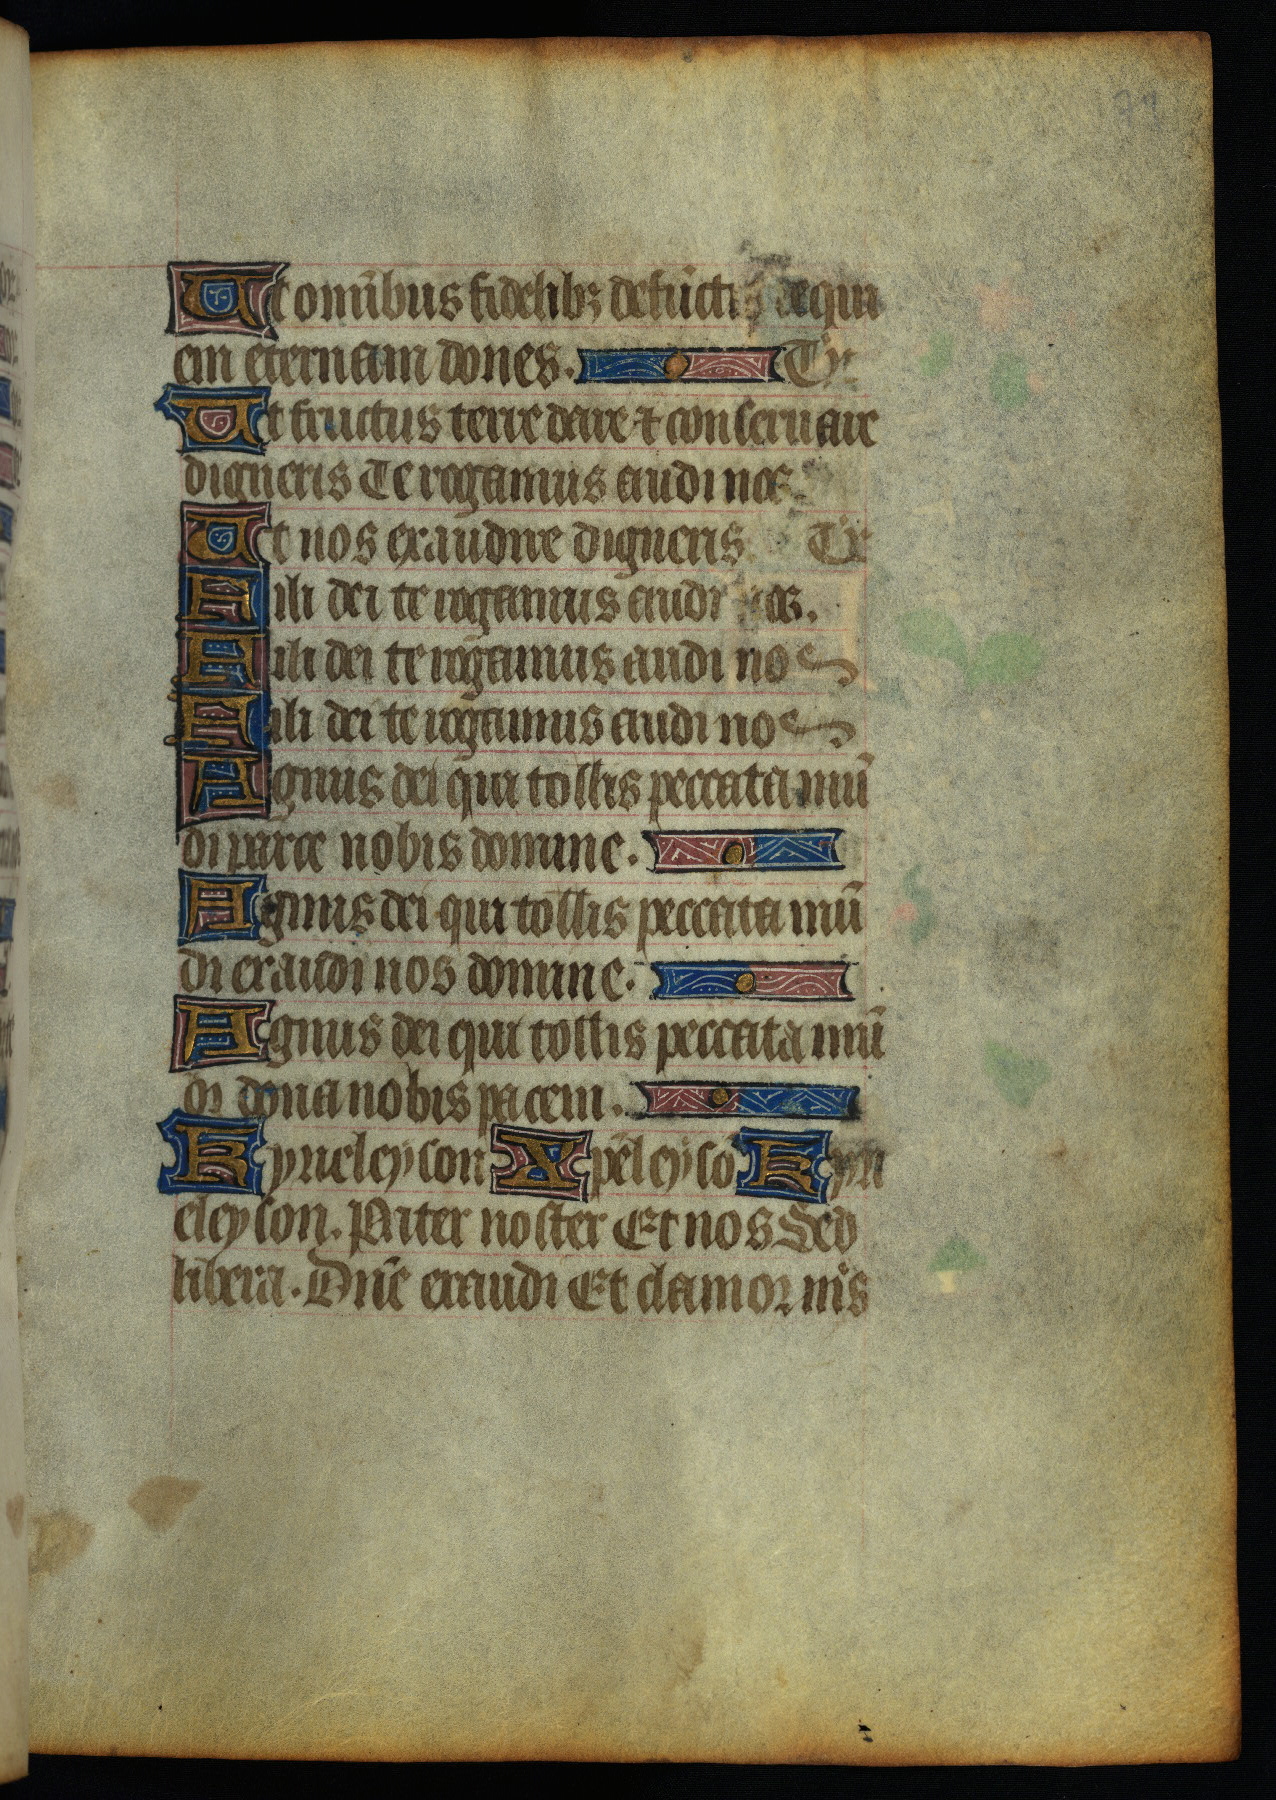 Ut omību s fidelibȝ defūctis requi
em eternam dones. Te
Ut fructus terre dare ⁊ conseruare
digneris Te rogamus audi nos
Ut nos exaudire digneris Te
Fili dei te rogamus audi nos.
Fili dei te rogamus audi nos
Fili dei te rogamus audi nos
Agnus dei qui tollis peccata mū
di parce nobis domine.
Agnus dei qui tollis peccata mū
di exaudi nos domine.
Agnus dei qui tollis peccata mū
di dona nobis pacem.
Kyrieleyson Xpēleysō Kyri
eleyson. Pater noster Et nos Sed
libera. Dnē exaudi Et clamor ms